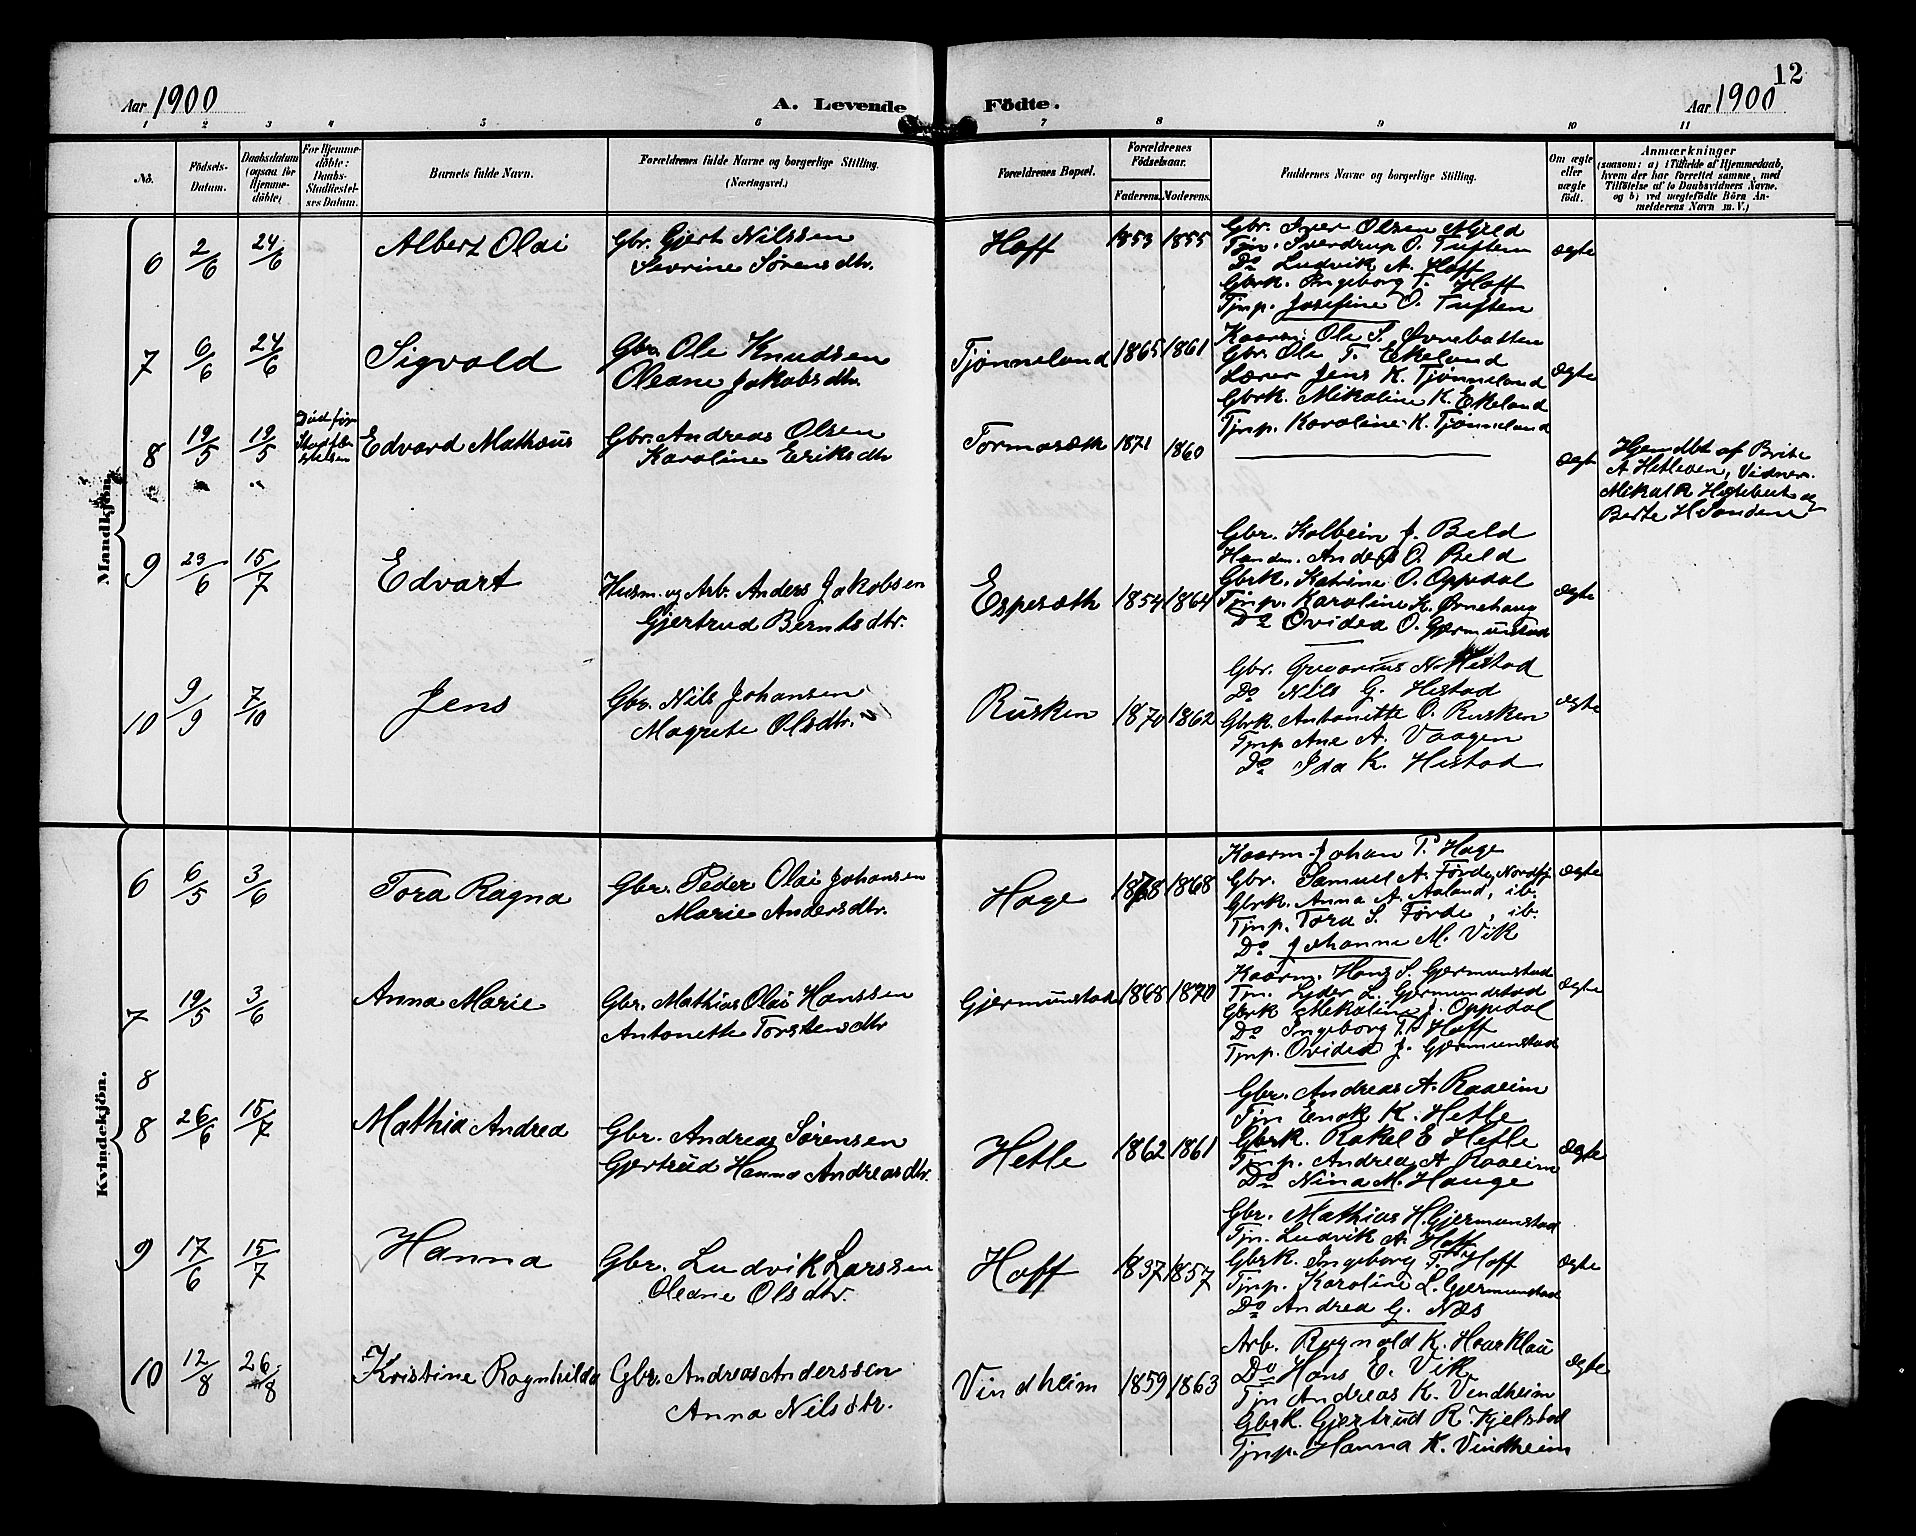 12
Aar 1900
A. Levende Födte.
Aar 1900
1 2 3 4 5 6 7 8 9 10 11
No.
Födsels-Datum.
Daabsdatum (ogsaa for Hjemme-döbte)
For Hjemme-döbte: Daabs-Stadfæstel-ses Datum.
Barnets fulde Navn.
Forældrenes fulde Navne og borgerlige Stilling. (Næringsvei.)
Forældrenes Bopæl.
Forældrenes Födselsaar.
Faderens. Moderens.
Faddernes Navne og borgerlige Stilling.
Om ægte eller uægte födt.
Anmærkninger
(saasom: a) i Tilfælde af Hjemmedaab,
hvem der har forrettet samme, med
Tilföielse af to Daabsvidners Navne.
og b) ved uægtefödte Börn An-
melderens Navn m. V.)
Mandkjön.
6 2/6 24/6 Albert Olai
Gbr. Gjert Nilssen
Sevrine Sørensdtr.
Hoff 1853 1855
Gbr. Iver Olsen
Tjn. Sverdrup O. Tuften
Do Ludvik A. Hoff
Gbrk. Ingeborg T. Hoff
Tjnp. Josefine O. Tuften
ægte
7 6/6 24/6 Sigvald
Gbr. Ole Knudsen
Oleane Jakobsdtr.
Tjønneland 1865 1861
Kaarm. Ole S. Øvrebotten
Gbr. Ole T. Ekeland
Lærer Jens K. Tjønneland
Gbrk. Mikaline K. Ekeland
Tjnp. Karoline K. Tjønneland
ægte
8 19/5 19/5
Edvard Mathæus
Gbr. Andreas Olsen
Karoline Eriksdtr
Tormoseth 1871 1860
ægt
Hjemdbt af Brite
A Hetleven, Vidner.
Mikal R
Berte H Sandene
9 23/6 15/7 Edvart
Husm. og Arb. Anders Jakobsen
Gjertrud Berntsdtr.
Espeseth 1854 1864
Gbr. Kolbein J. Beld
Anders O. Beld
Gbrk. Katrine O. Oppedal
Tjnp. Karoline K. Ørnehaug
Do Ovidea O. Gjermunstad
ægte
10 9/9 7/10 Jens
Gbr. Nils Johansen
Magrete Olsdtr.
Rusken 1870 1862
Gbr. Grearius N. Hestad
Do Nils G. Hestad
Gbrk. Antonette O. Rusken
Tjnp Ane A. Vaagen
Do Ida K. Hestad
ægte
Kvindekjön.
6 6/5 3/6 Tora Ragna
Gbr. Peder Olai Johansen
Marie Andersdtr.
Hage 1868
Kaarm. Johan P. Hage
Gbr. Samuel A. Førde, Nordfj.
Gbrk. Anna A. Aaland, ib.
Tjnp. Tora S. Førde, ib.
Do Johanne M. Vik
ægte
7 19/5 3/6 Anna Marie
Gbr. Mathias Olai Hanssen
Antonette Torstensdtr
Gjermunstad 1868 1870
Kaarm. Hans S. Gjermunstad
Tjn. Lyder L. Gjermundstad
Gbrk Mikaline J. Oppedal
Do Ingeborg T. Hoff
Tjnp. Ovidea J. Gjermunstad
ægte
8
8 26/6 15/7 Mathia Andrea
Gbr. Andreas Sørensen
Gjertrud Hanna Andreasdtr.
Hetle 1862 1861
Gbr. Andreas A. Raaeim
Tjn Enok K. Hetle
Gbrk. Rakel E Hetle
Tjnp. Andrea A Raaeim
Do Nina M. Hauge
ægte
9 17/6 15/7 Hanna
Gbr. Ludvik Larssen
Oleane Olsdtr.
Hoff 1837 1857
Gbr. Mathias H. Gjermunstad
Tjn. Ludvik A. Hoff
Gbrk. Ingeborg T. Hoff
Tjnp. Karoline L. Gjermunstad
Do Andrea G. Næs
ægte
10 12/8 26/8 Kristine Ragnhilda
Gbr. Andreas Anderssen
Anna Nilsdtr.
Vindheim 1859 1863
Arb. Rognald K. Haarklau
Do Hans E. Vik
Tjn Andreas K. Vindheim
Gbrk. Gjertrud R. Kjelstad
Tjnp. Hanna K. Vindheim
ægte